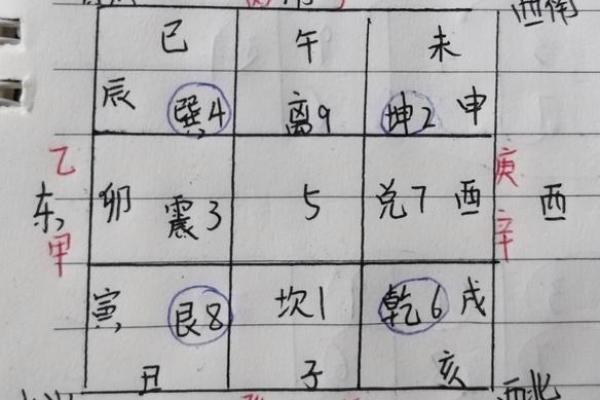 西南
巳 午 未
辰 巽4 离9 坤2 申
乙 庚
东 卯 震3 5 兑7 酉 西
甲 辛
寅 艮8 坎1 乾6 戌
丑 子 亥
西北